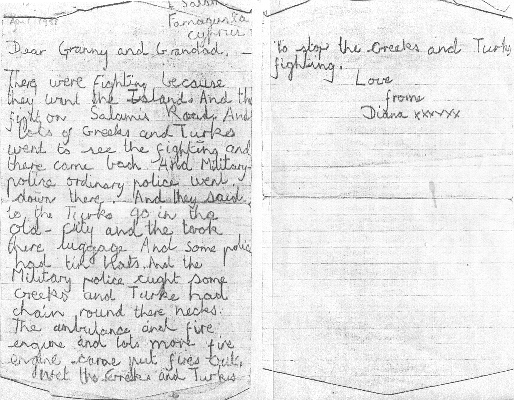 Salamis
Famagusta
Cyprus
Dear Granny and Grandad,
There were fighting because
they want the Island. And the
fight on Salamis Road. And
lots of Greeks and Turkes
went to see the fighting and
there came back And Military
police ordinary police went
down there. And they said
to the Turks go in the
old-city and the took
there luggage And some police
had tin hats. And the
Military police cught some
Greeks and Turke had
chain round there necks.
The ambulance and fire
engine and lots more fire
engine came put fires out.
the Greeks and Turkes
to stop the Greeks and Turks
fighting.
Love
frome
Diana xxxvxx